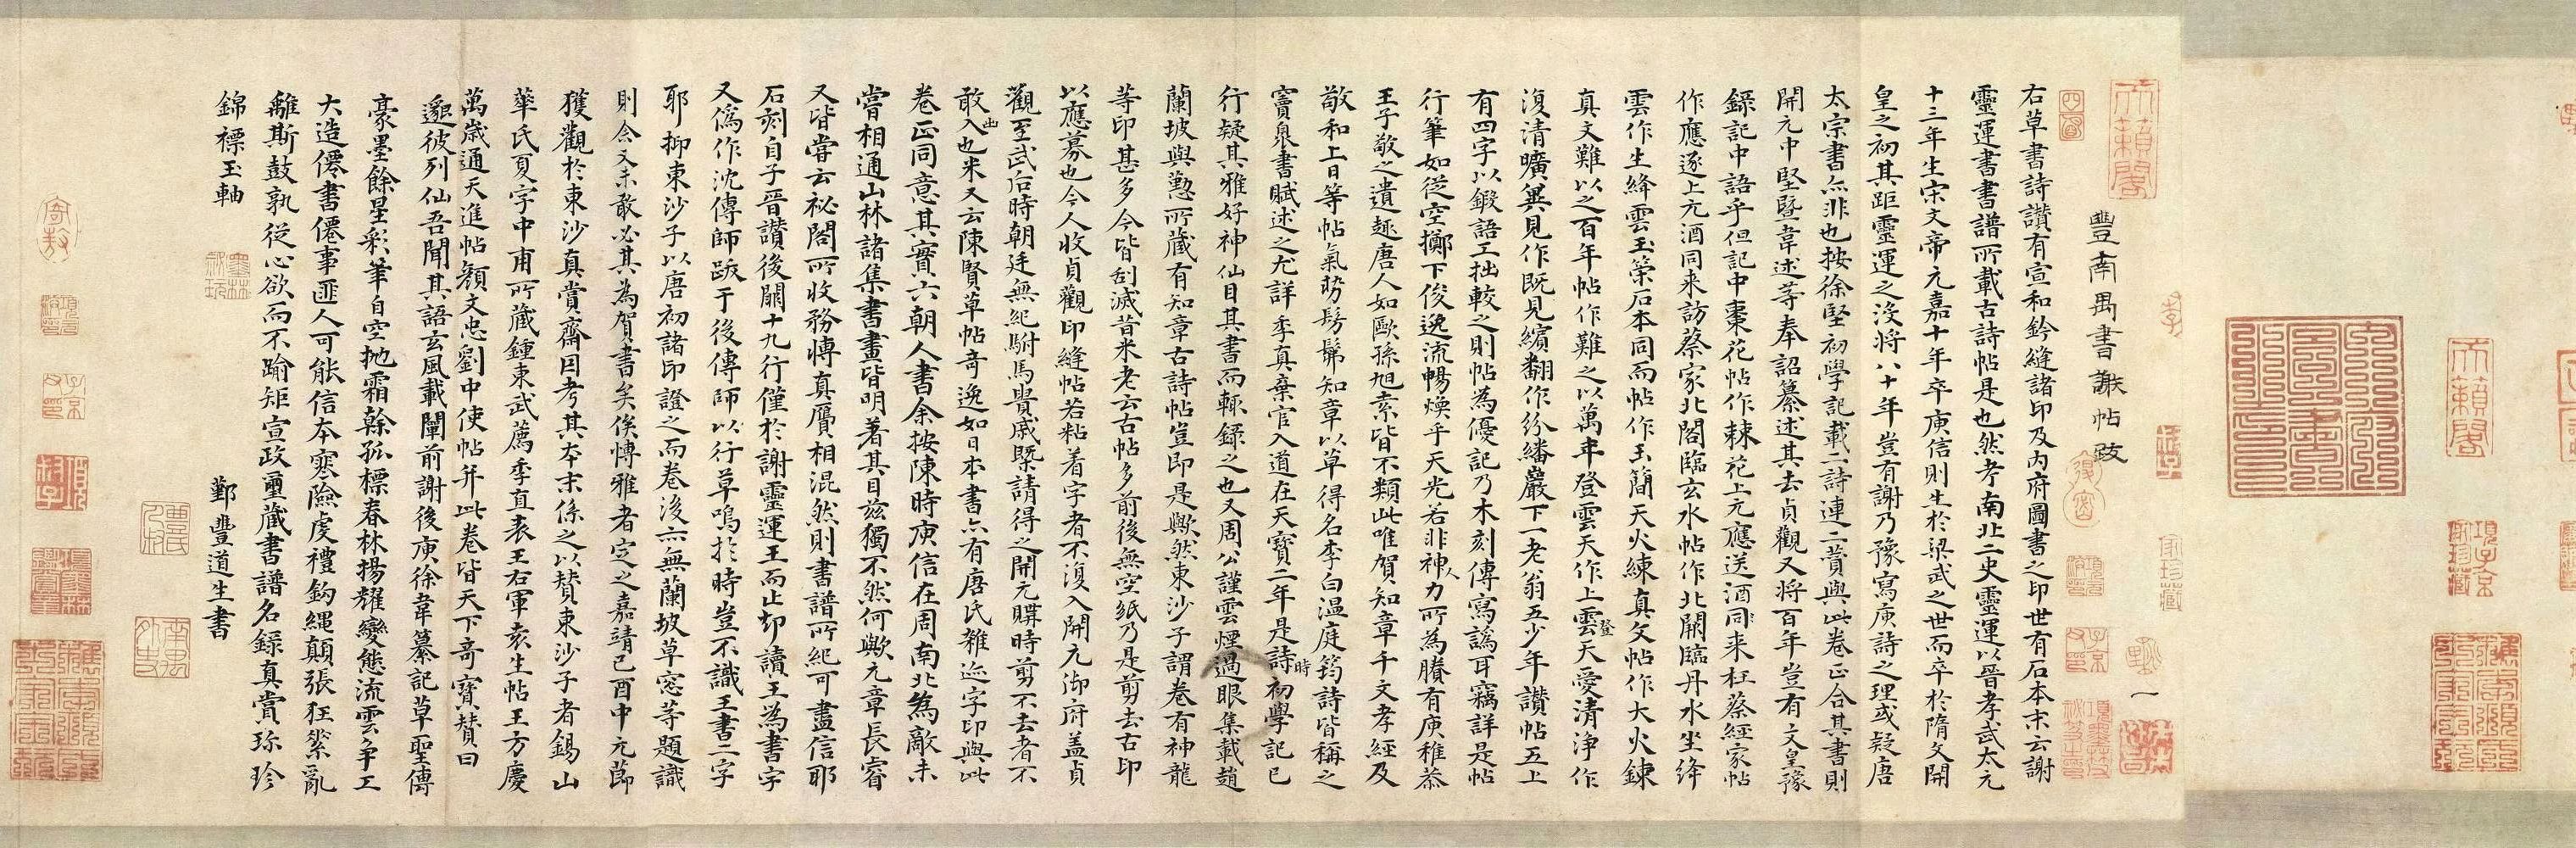 豐南禺書謝帖跋
右草書詩讚有宣和鈐縫諸印及內府圖書之印世有石本末云謝
靈運書書譜所載古詩帖是也然考南北二史靈運以晉孝武太元
十三年生宋文帝元嘉十年卒庾信則生於梁武之世而卒於隋文開
皇之初其距靈運之沒將八十年豈有謝乃豫寫庾詩之理或疑唐
太宗書亦非也按徐堅初學記載二詩連二贊與此卷正合其書則
開元中堅暨韋述等奉詔纂述其去貞觀又將百年豈有文皇豫
錄記中語乎但記中棗花帖作棘花上元應送酒同来枉蔡經家帖
作應逐上元酒同来訪蔡家北閣臨玄水帖作北闕臨丹水坐絳
雲作生絳雲玉策石本同而帖作玉簡天火練真文帖作大火鍊
真文難以之百年帖作難之以萬年登雲天作上登雲天愛清浄作
復清曠異見作既見繽翻作紛繙巖下一老翁五少年讚帖五上
有四字以鍛語工拙較之則帖為優記乃木刻傳寫譌耳竊詳是帖
行筆如從空擲下俊逸流暢煥乎天光若非人力所為賸有庾稚恭
王子敬之遺趣唐人如歐孫旭素皆不類此唯賀知章千文孝經及
敬和上日等帖氣勢髣髴知章以草得名李白温庭筠詩皆稱之
竇臮書賦述之尤詳季真棄官入道在天寶二年是時初學記已
行疑其雅好神仙目其書而輒錄之也又周公謹雲煙過眼集載趙
蘭坡與懃所藏有知章古詩帖豈即是歟然東沙子謂卷有神龍
等印甚多今皆刮滅昔米老云古帖多前後無空紙乃是剪去古印
以應募也今人收貞觀印縫帖若粘着字者不復入開元御府蓋貞
觀至武后時朝廷無紀駙馬貴戚槩請得之開元購時剪不去者不
敢出也米又云陳賢草帖奇逸如日本書亦有唐氏雜迹字印與此
卷正同意其實六朝人書余按陳時庾信在周南北為敵未
嘗相通山林諸集書畫皆明著其目兹獨不然何歟元章長睿
又皆嘗云祕閣所收務慱真贋相混然則書譜所紀可盡信耶
石刻自子晉讚後闕十九行僅於謝靈運王而止却讀王為書字
又偽作沈傳師跋于後傳師以行草鳴於時豈不識王書二字
耶抑東沙子以唐初諸印證之而卷後亦無蘭坡草窓等題識
則余又未敢必其為賀書矣俟慱雅者定之嘉靖己酉中元節
獲觀於東沙真賞齋因考其本末係之以賛東沙子者錫山
華氏夏字中甫所藏鍾東武薦季直表王右軍袁生帖王方慶
萬歲通天進帖顏文忠劉中使帖并此卷皆天下奇寶賛曰
邈彼列仙吾聞其語玄風載闡前謝後庾徐韋纂記草聖傳
豪墨餘星彩筆自空抛霜榦孤標春林揚耀變態流雲争工
大造僊書僊事匪人可能信本寒險虔禮鈎繩顛張狂縈亂
離斯鼓孰從心欲而不踰矩宣政璽藏書譜名錄真賞珎珍
錦褾玉軸
鄞豐道生書